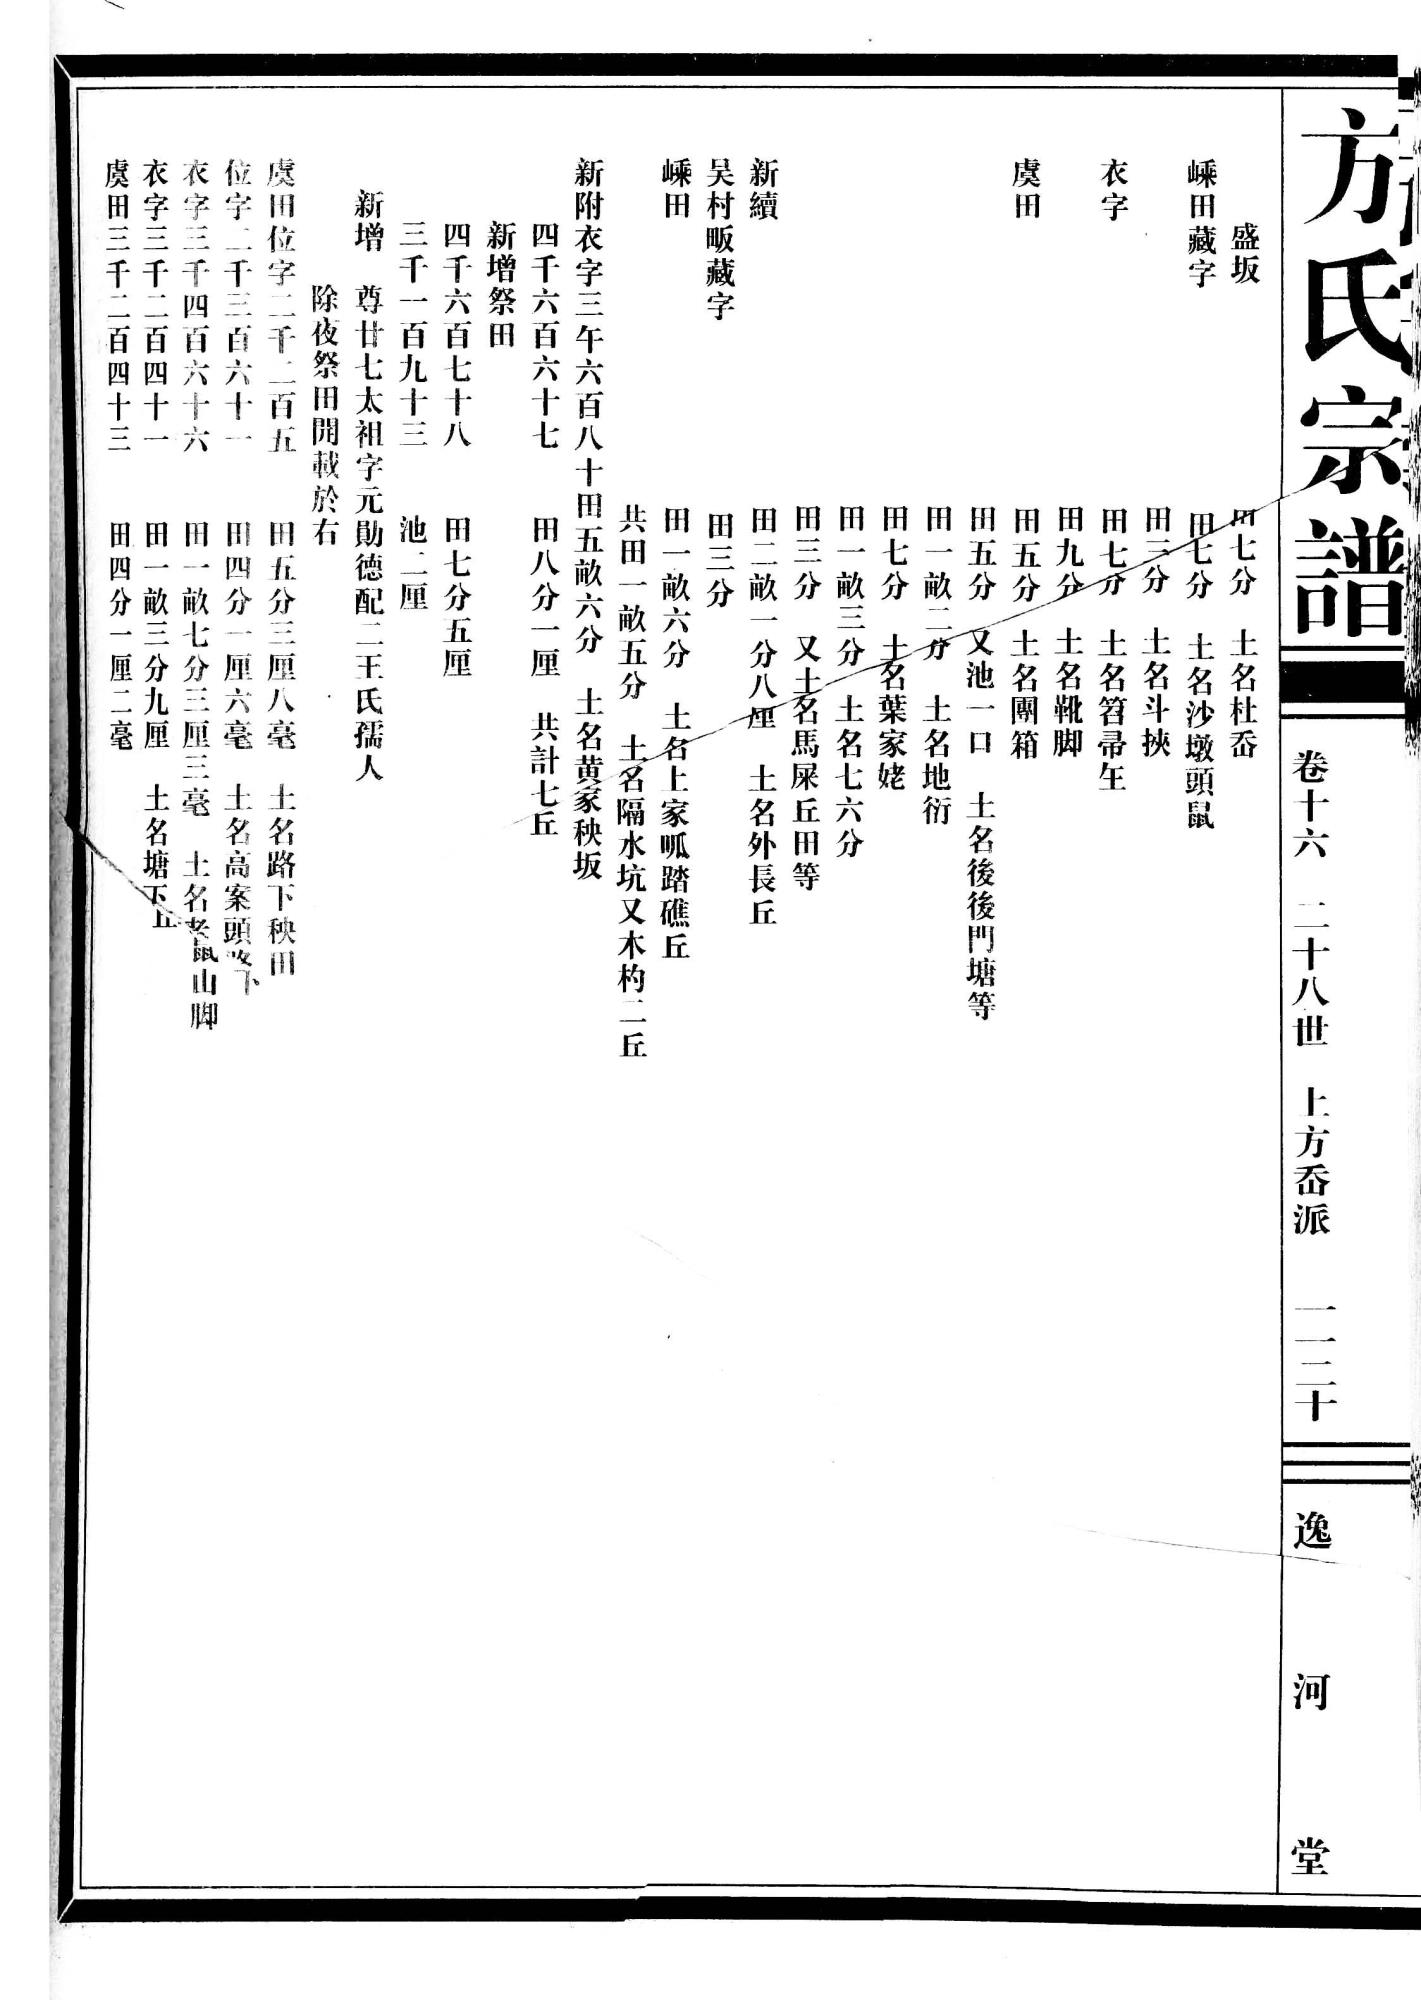 方氏宗譜
卷十六 二十八世 上方岙派 一一二十
逸河堂
盛坂 田七分 土名杜岙
嵊田藏字 田七分 土名沙墩頭鼠
田三分 土名斗挾
衣字 田七分 土名笤帚
田九分 土名靴脚
虞田 田五分 土名團箱
田五分 又池一口 土名後後門塘等
田一畝二分 土名地衍
田七分 土名葉家姥
田一畝三分 土名七六分
田三分 又土名馬屎丘田等
新續 田二畝一分八厘 土名外長丘
吴村畈藏字 田三分
嵊田 田一畝六分 土名上家呱踏礁丘
共田一畝五分 土名隔水坑又木杓二丘
新附衣字三午六百八十田五畝六分 土名黄家秧坂
四千六百六十七 田八分一厘 共計七丘
新增祭田
四千六百七十八 田七分五厘
三千一百九十三 池二厘
新增 尊廿七太祖字元勛德配二王氏孺人
除夜祭田開載於右
虞田位字二千二百五 田五分三厘八毫 土名路下秧田
位字二千三百六十一 田四分一厘六毫 土名高案頭路下
衣字三千四百六十六 田一畝七分三厘三毫 土名老鼠山脚
衣字三千二百四十一 田一畝三分九厘 土名塘下丘
虞田三千二百四十三 田四分一厘二毫